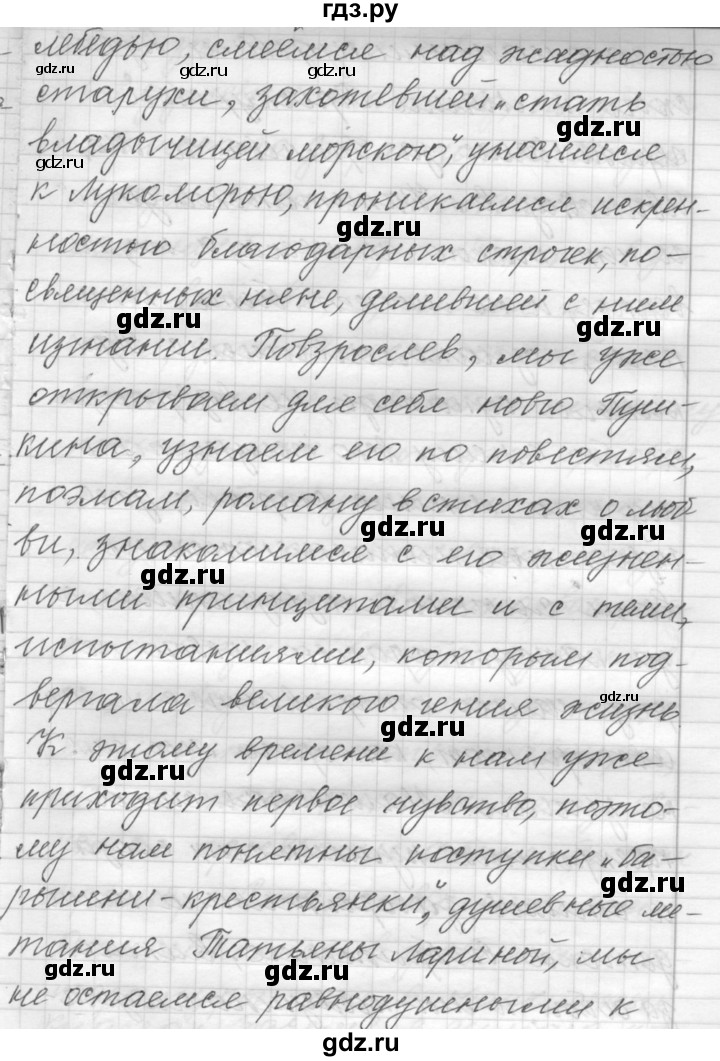 гдз.ру
лебедью, смеёмся над жадностью
gdz.ru gdz.ru gdz.ru
старухи, захотевшей „стать
gdz.ru
владычицей морскою“, уносимся
gdz.ru
к Лукоморью, проникаемся искрен-
gdz.ru
ностью благодарных строчек, по-
священных няне, делившей с ним
gdz.ru gdz.ru
изгнании. Повзрослев, мы уже
открываем для себя ново Пуш-
кина, узнаем его по повестям,
поэмам, роману в стихах о люб
gdz.ru gdz.ru
ви, знакомимся с его жизнен-
gdz.ru
ными принципами и с теми,
испытаниями, которым под-
gdz.ru
вергала великого гения жизнь
gdz.ru
К этому времени к нам уже
gdz.ru
приходит первое чувство, поэто-
му нам понятны поступки „ба-
gdz.ru
рышни-крестьянки“, душевные ме-
тания Татьяны Лариной, мы
gdz.ru gdz.ru
не остаемся равнодушными к
gdz.ru